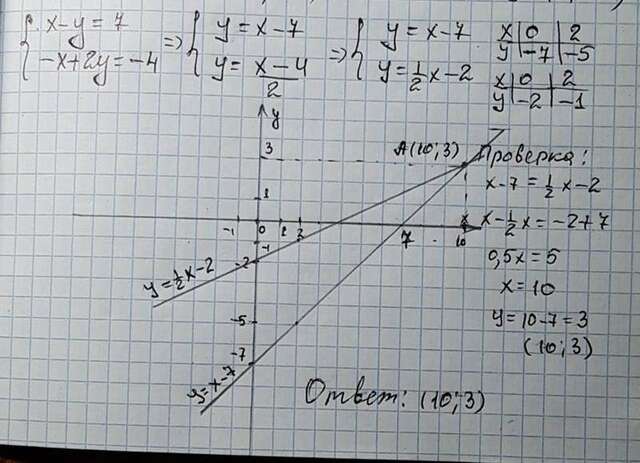 { x-y=7 => { y=x-7 => { y=x-7
{ -x+2y=-4 { y=x-4/2 { y=1/2x-2
x|0|2
y|-7|-5
x|0|2
y|-2|-1
y
3
A(10;3)
1
-1 0 1 2 7 10 x
-1
-2
-5
-7
y=1/2x-2
y=x-7
Проверка:
x-7=1/2x-2
x-1/2x=-2+7
0,5x=5
x=10
y=10-7=3
(10;3)
Ответ: (10;3)